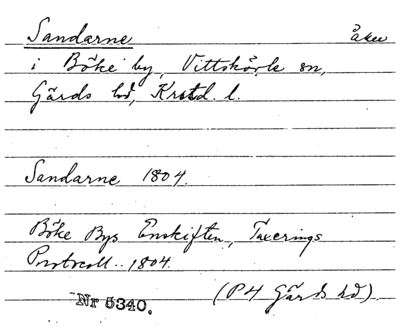 Sandarne åker
i Böke by, Vittskövle sn,
Gärds hd, Krstd. l.
Sandarne 1804.
Böke Bys Enskiften, Taxerings
Protocoll.. 1804.
(P4 Gärds hd)
Nr 5340.